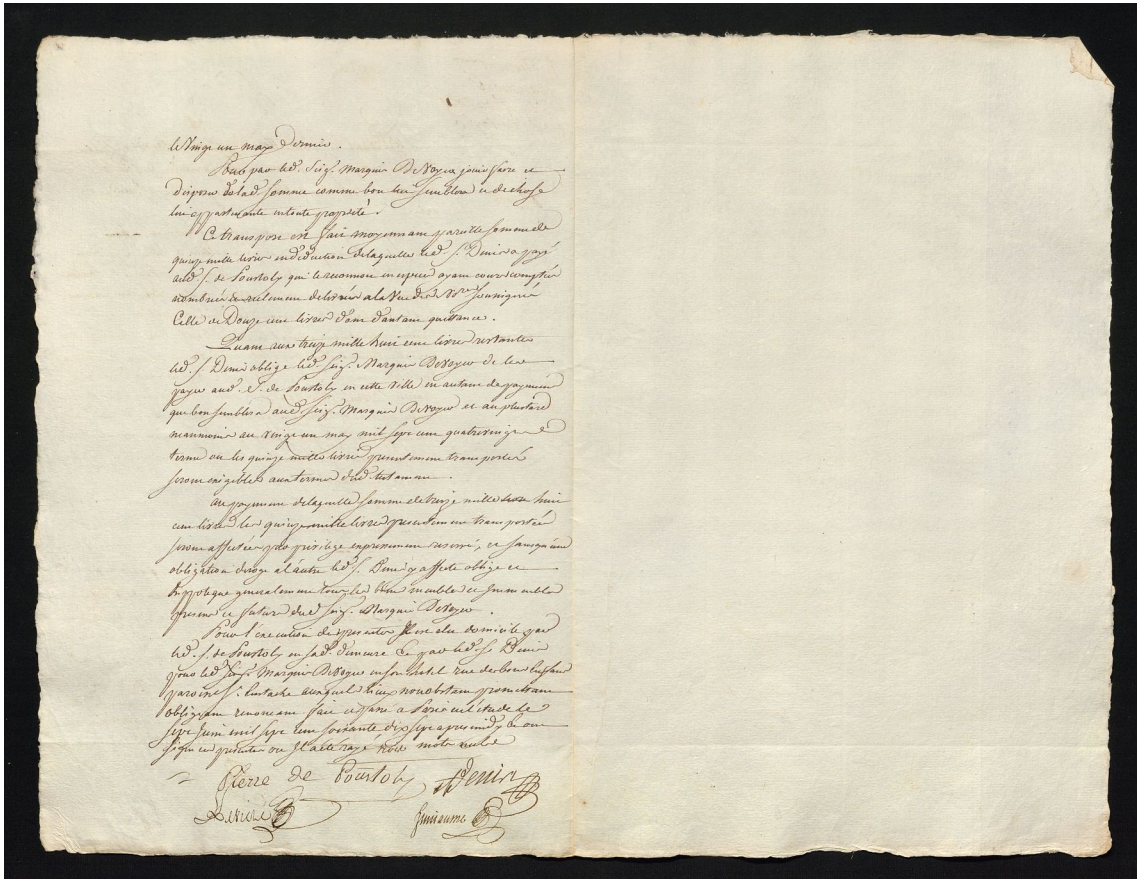 le Vingt un may Dernier.
Pour par led. Seig.r Marquis De Voyer jouir faire et
disposer de lad. somme comme bon luy semblera et de chose
lui appartenante en toute propriété.
Ce transport est fait moyennant pareille somme de
quinze mille livres en déduction de laquelle led. S. Denis a payé
aud. S. de Poustoly qui le reconnoit en especes ayant cours comptées
nombrées et reelement delivrées a la Vue des No.res soussignés
Celle de Douze cent livres dont d'autant quittance.
Quant aux treize mille huit cent livres restantes
led. S. Denis oblige led. Seig.r Marquis De Voyer de les
payer aud. S. de Poustoly en cette Ville en autant de payemens
que bon semblera aud. Seig.r Marquis De Voyer et au plustard
neanmoins au vingt un may mil sept cent quatrevingt
terme ou les quinze mille livres presentement transportées
seront exigibles aux termes dud. testament.
Au payement de laquelle somme de treize mille huit
cent livres les quinze mille livres presentement transportées
seront affectées par privilege expressement reservé, et sans qu'une
obligation deroge à l'autre led. S. Denis y affecte oblige et
hypoteque generalement tous les biens meubles et immeubles
presens et futurs dud. Seig.r Marquis De Voyer.
Pour l'execution des presentes Il est elu domicile par
led. S. de Poustoly en sad. demeure Et par led. S. Denis
pour led. Seig.r Marquis De Voyer en son hotel rue des bons Enfans
paroisse S.t Eustache auxquels lieux nonobstant promettant
obligeant renonçant fait et passé a Paris en l'etude le
sept Juin mil sept cent soixante dix sept apres midy Et ont
signé ces presentes ou Il a eté rayé trois mots nuls
Pierre de Poustoly Denis
Guillaume